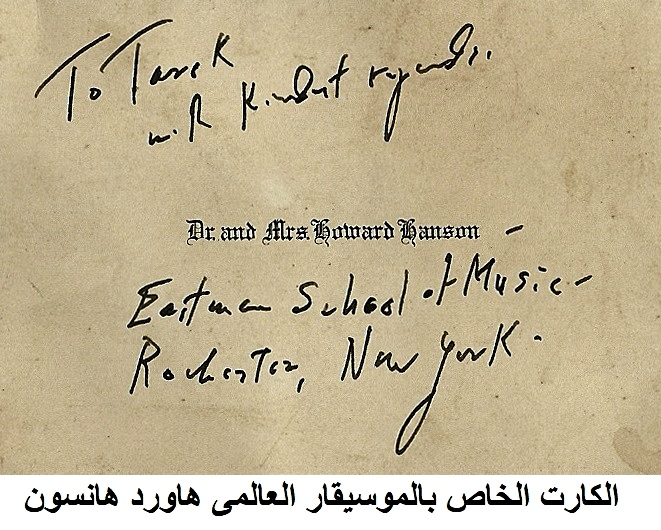 To Tarek
with Kindest regards.
Dr. and Mrs. Howard Hanson –
Eastman School of Music –
Rochester, New York.
الكارت الخاص بالموسيقار العالمى هاورد هانسون